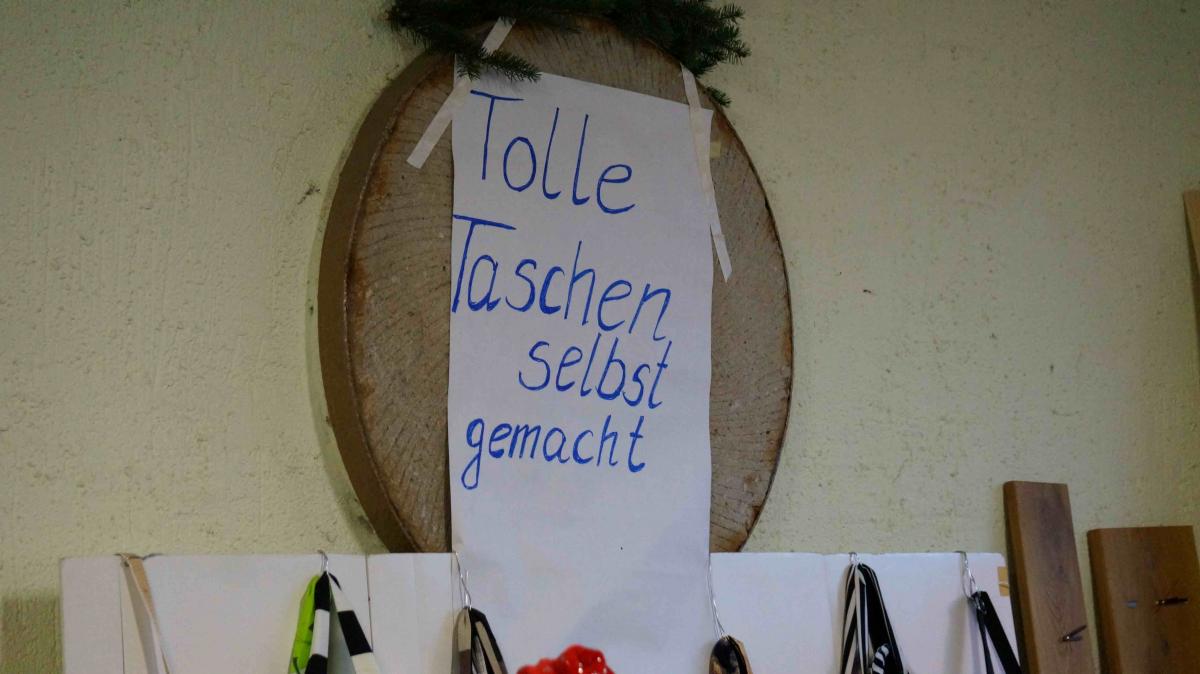 Tolle
Taschen
selbst
gemacht